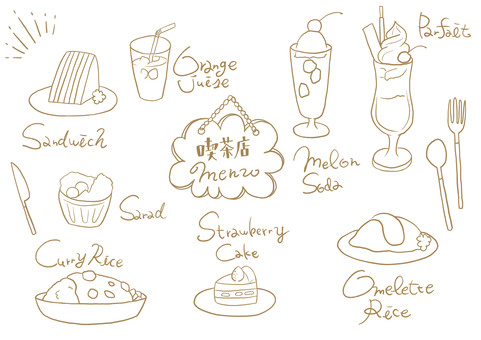 Parfait
Orange
Juise
Sandwich
喫茶店
menzo
Melon
Soda
Sarad
Strawberry
Cake
Curry Rice
Omelette
Rice